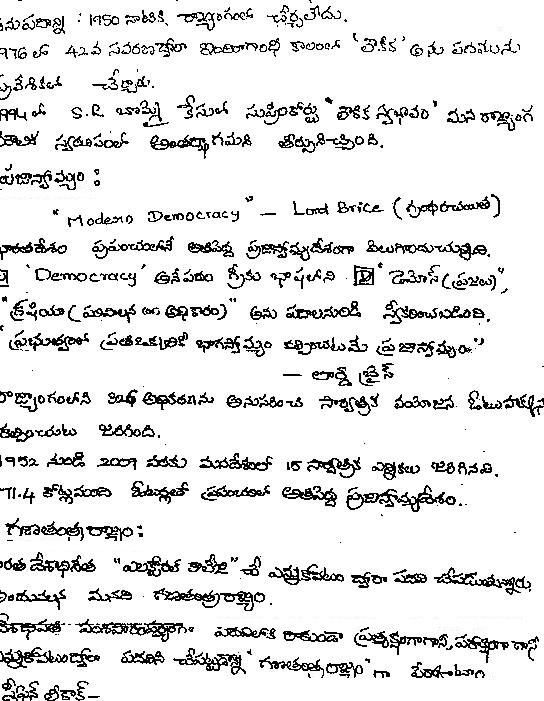 : 1950 నాటికి రాజ్యాంగంలో చేర్చలేదు.
1976 లో 42వ సవరణ ద్వారా ఇందిరాగాంధీ కాలంలో 'లౌకిక' అను పదమును
ప్రవేశికలో చేర్చారు.
1994 లో S.R. బొమ్మై కేసులో సుప్రీంకోర్టు "లౌకిక స్వభావం" మన రాజ్యాంగ
మౌలిక స్వరూపంలో అంతర్భాగమని తీర్పునిచ్చింది.
ప్రజాస్వామ్యం :
"Modern Democracy" – Lord Brice (గ్రంథరచయిత)
భారతదేశం ప్రపంచంలోనే అతిపెద్ద ప్రజాస్వామ్యదేశంగా పిలువబడుచున్నది.
'Democracy' అనేపదం గ్రీకు భాషలోని "డెమోస్ (ప్రజలు)",
"క్రషియా (పరిపాలన or అధికారం)" అను పదాలనుండి స్వీకరించబడింది.
"ప్రభుత్వంలో ప్రతిఒక్కరికి భాగస్వామ్యం కల్పించటమే ప్రజాస్వామ్యం"
– లార్డ్ బ్రైస్
రాజ్యాంగంలోని 326 అధికరణను అనుసరించి సార్వత్రిక వయోజన ఓటుహక్కును
కల్పించుట జరిగింది.
1952 నుండి 2009 వరకు మనదేశంలో 15 సార్వత్రిక ఎన్నికలు జరిగినవి.
71.4 కోట్లమంది ఓటర్లతో ప్రపంచంలో అతిపెద్ద ప్రజాస్వామ్యదేశం.
గణతంత్ర రాజ్యం :
భారత దేశాధినేత "ఎలక్టోరల్ కాలేజి" చే ఎన్నుకోబడుట ద్వారా పదవి చేపడుతున్నారు.
అందువలన మనది గణతంత్ర రాజ్యం.
దేశాధిపతి వంశపారంపర్యంగా పదవిలోకి రాకుండా ప్రత్యక్షంగాగాని, పరోక్షంగా గాని
ఎన్నుకోబడుట ద్వారా పదవిని చేపట్టడాన్ని "గణతంత్ర రాజ్యం" గా పేర్కొంటారు
స్టీఫెన్ లీకాక్ –